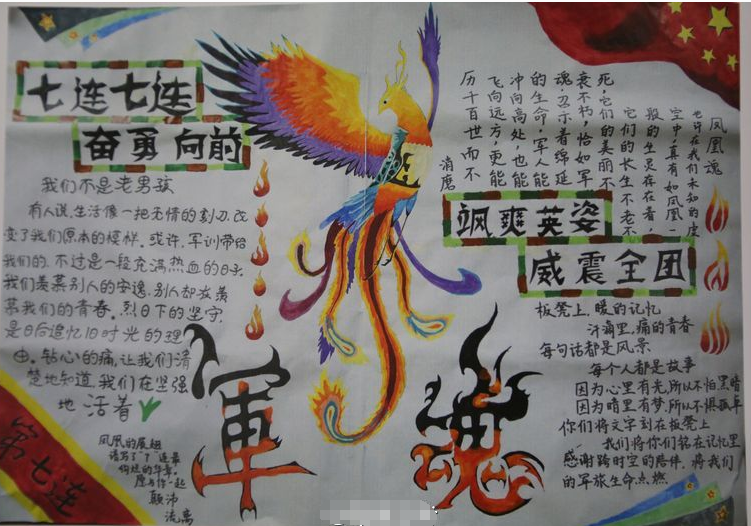 七连七连
奋勇向前
我们不是老男孩
有人说,生活像一把无情的刻刀,改
变了我们原本的模样,或许,军训带给
我们的,不过是一段充满热血的日子.
我们羡慕别人的安逸,别人却在羡
慕我们的青春。烈日下的坚守,
是日后追忆旧时光的理
由。钻心的痛,让我们清
楚地知道,我们在坚强
地活着
第七连
凤凰的展翅
谱写了“7”连最
愿与你一起
颠沛
流离
軍
魂
凤凰魂
也许在我们未知的虚
空中,真有如凤凰一
般的生灵存在者,
它们的长生不老不
死,它们的美丽不
衰不朽,恰如军
魂,召示着绵延
的生命,军人能
冲向高处,也能
飞向远方,更能
历千百世而不
消磨
飒爽英姿
威震全团
板凳上,暖的记忆
汗滴里,痛的青春
每句话都是风景
每个人都是故事
因为心里有光,所以不怕黑暗
因为暗里有梦,所以不惧孤单
你们将文字刻在板凳上
我们将你们铭在记忆里
感谢跨时空的陪伴,将我们
的军旅生命点燃